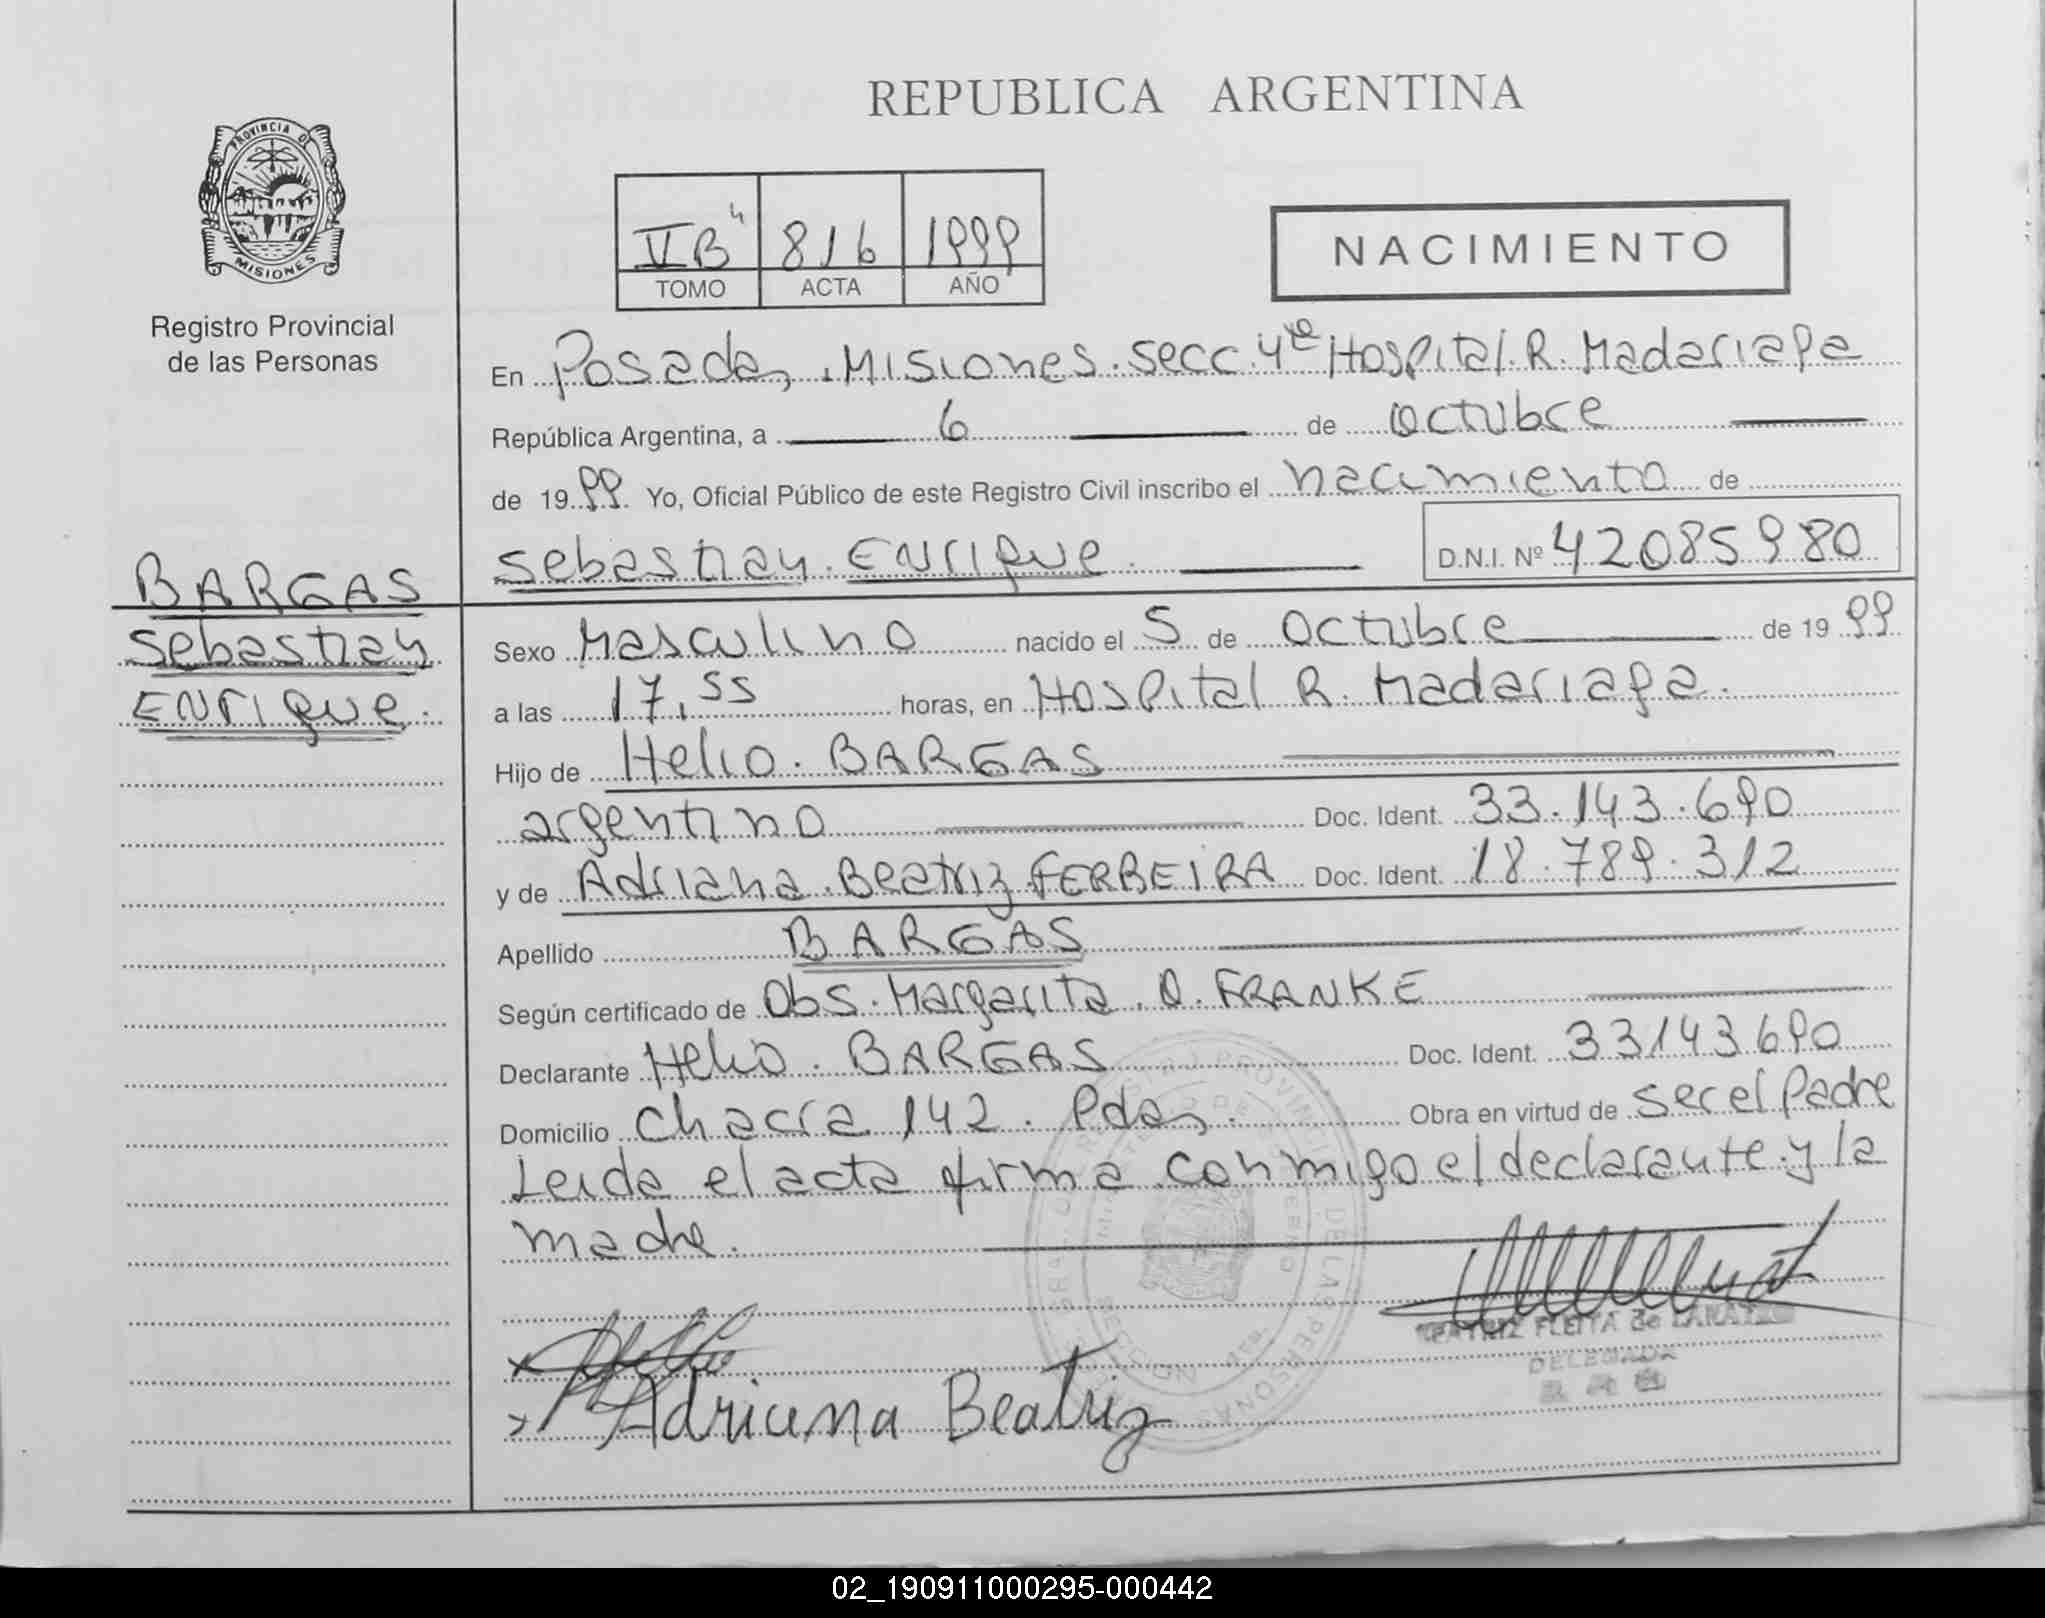 REPUBLICA ARGENTINA
PROVINCIA DE
MISIONES
Registro Provincial
de las Personas
VB 4 816 1999
TOMO ACTA AÑO
NACIMIENTO
En Posadas, Misiones. Secc. 4ta Hospital R. Madariaga
República Argentina, a 6 de Octubre
de 1999 Yo, Oficial Público de este Registro Civil inscribo el nacimiento de
Sebastian Enrique D.N.I. Nº 42085980
BARGAS
Sebastian
Enrique.
Sexo Masculino nacido el 5 de Octubre de 1999
a las 17,55 horas, en Hospital R. Madariaga.
Hijo de Helio. BARGAS
argentino Doc. Ident. 33.143.690
y de Adriana Beatriz FERREIRA Doc. Ident. 18.789.312
Apellido BARGAS
Según certificado de Obs. Margarita. O. FRANKE
Declarante Helio. BARGAS Doc. Ident. 33143690
Domicilio Chacra 142. Pdas. Obra en virtud de ser el Padre
Leida el acta firma conmigo el declarante y la
madre.
BEATRIZ FLEITA de
DELEGADA
Adriana Beatriz
02_190911000295-000442